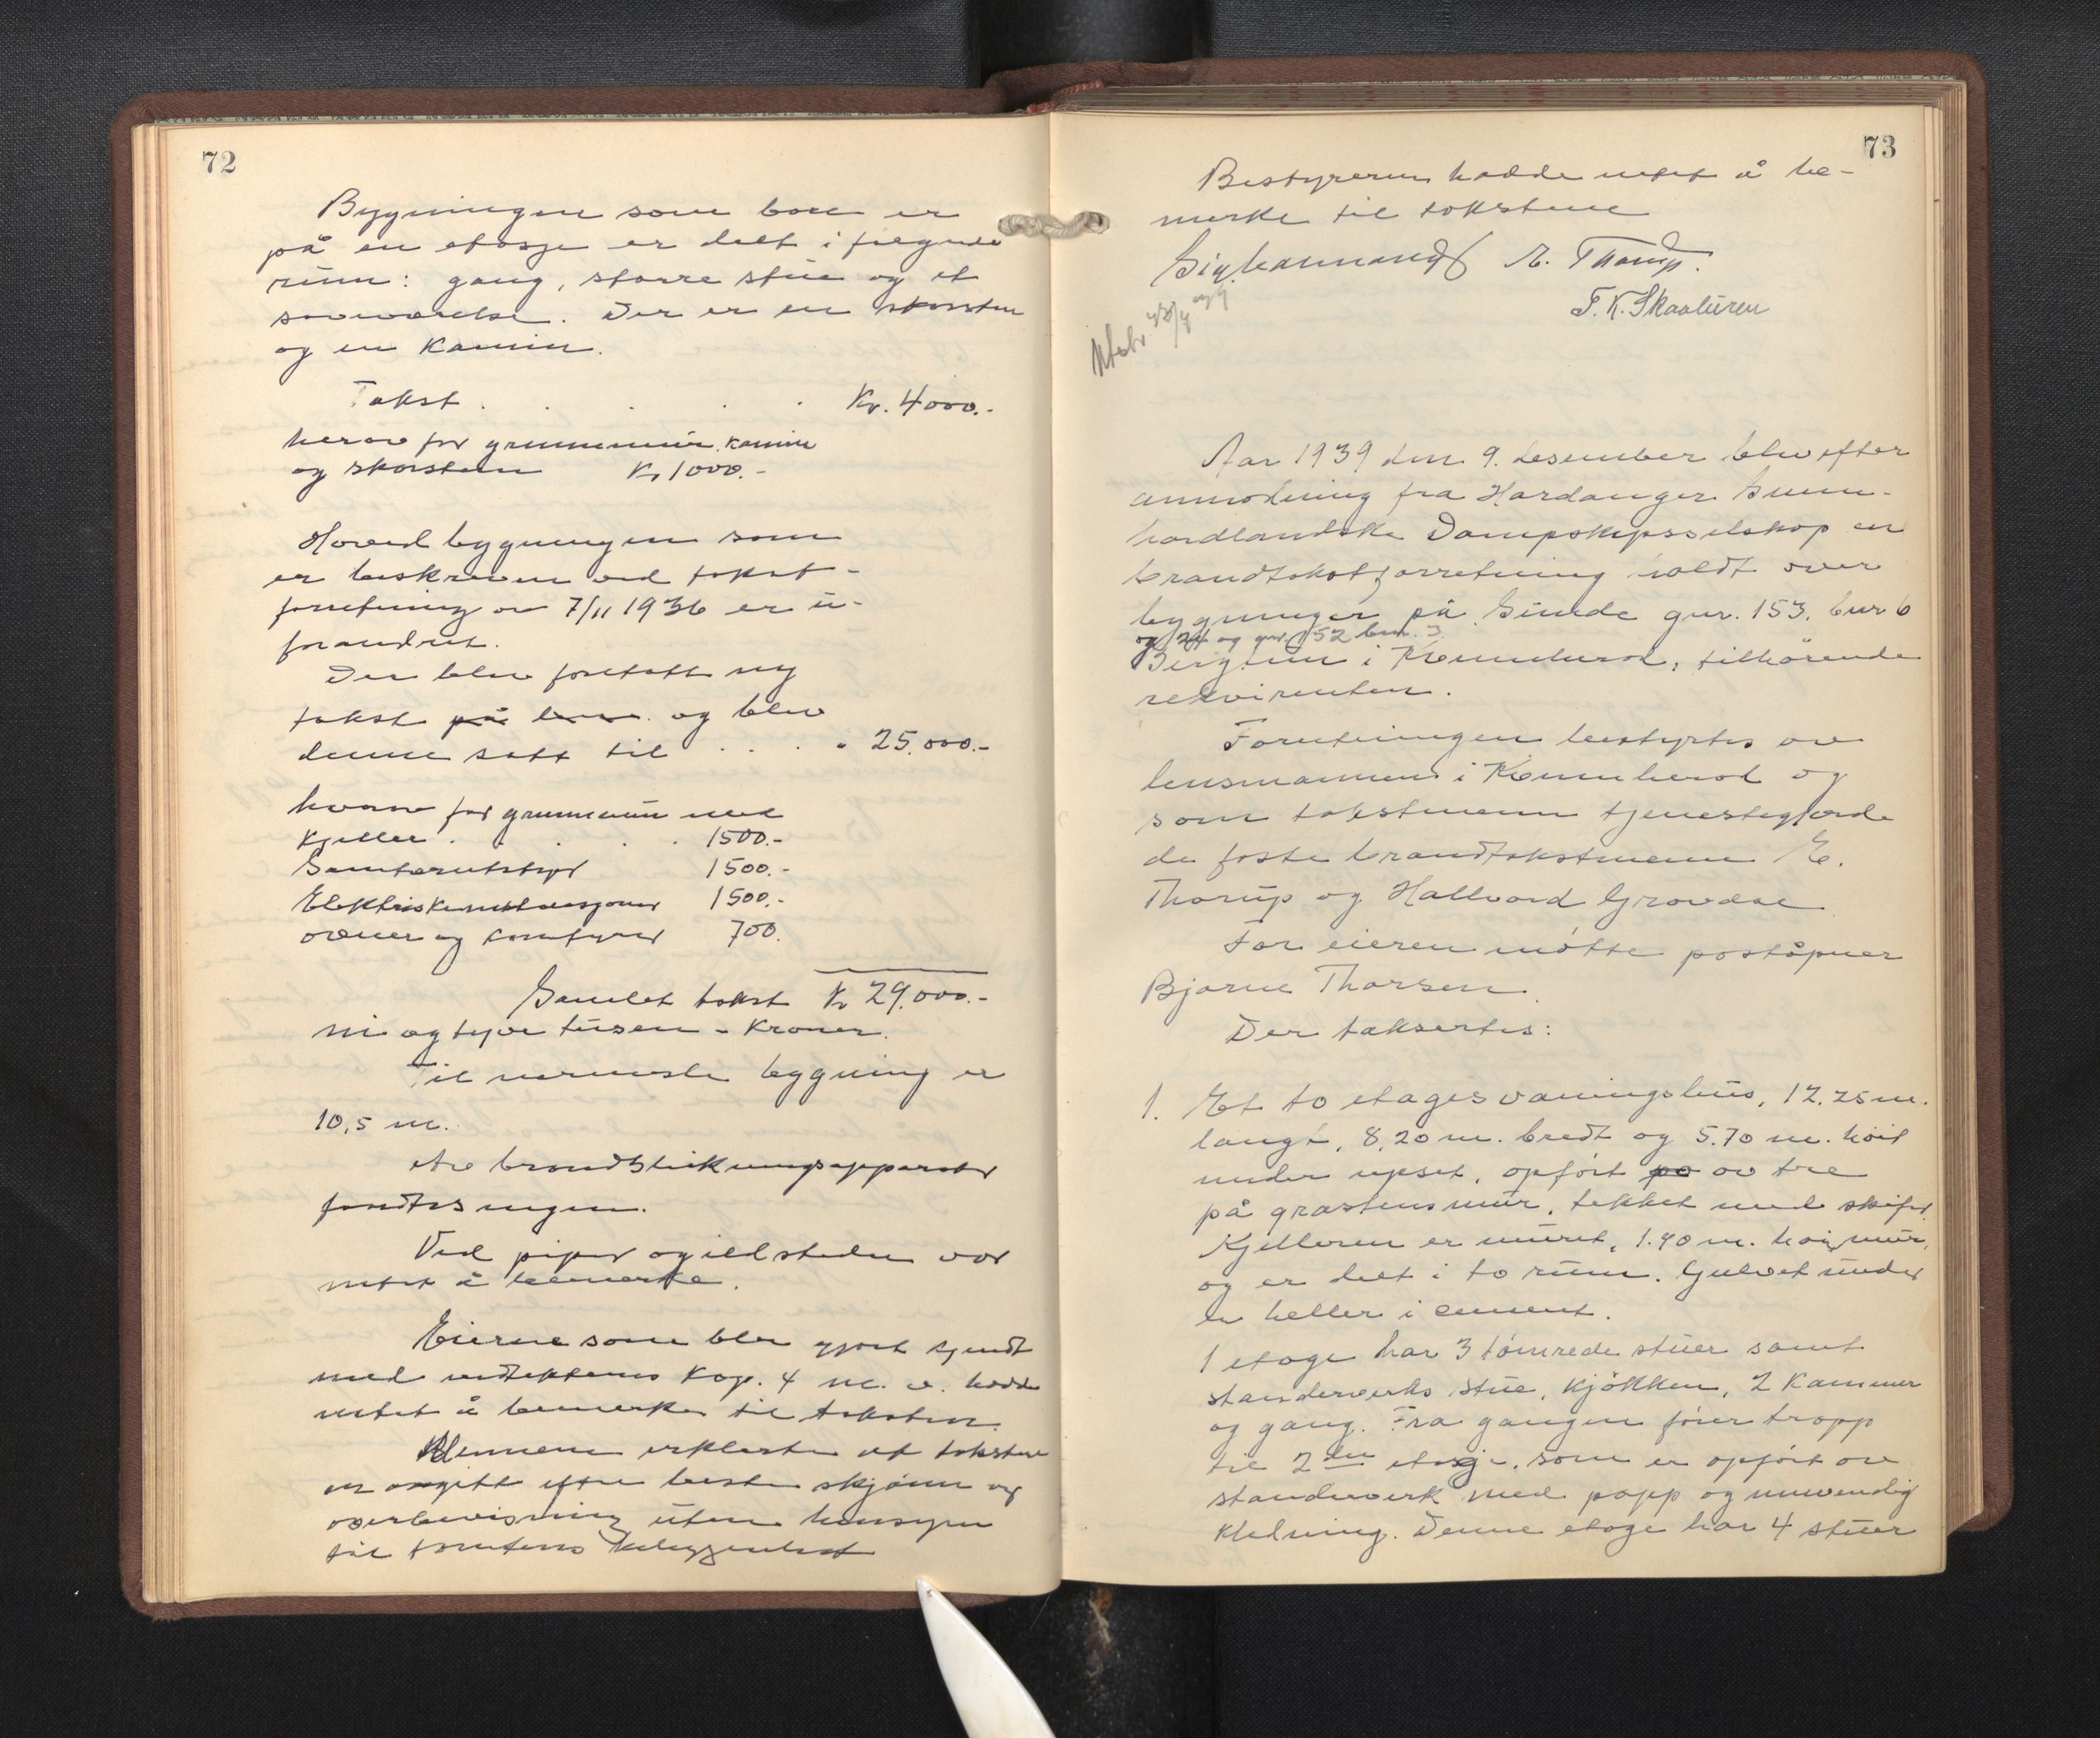 72
Bygningen som bare er
på en etasje er delt i følgende
rum: gang, større stue og et
soveværelse. Der er en skorsten
og en kamin.
Takst . . . . . Kr. 4000.-
herav for grunnmur, kamin
og skorsten Kr 1000.-
Hovedbygningen som
er beskreven ved takst-
forretning av 7/11 1936 er u-
forandret.
Der blev foretatt ny
takst på og blev
denne satt til . . . . " 25.000.-
hvorav for grunnmur med
kjeller . . . . 1500.-
Sanitærutstyr 1500.-
Elektriske installasjoner 1500.-
ovner og komfyrer 700.
Samlet takst Kr 29.000.-
ni og tyve tusen - Kroner.
Til nærmeste bygning er
10,5 m.
Av brandslukningsapparater
fandtes ingen.
Ved piper og ildsteder var
intet å bemerke.
Eierne som blev gjort kjendt
med vedtektenes Kap. 4 m. v. hadde
intet å bemerke til taksten.
Mennene erklærte at takstene
er avgitt efter beste skjønn og
overbevisning uten hensyn
til tomtens beliggenhet
73
Bestyreren hadde intet å be-
merke til takstene
E. Thorup.
T. K. Skaaluren
Utskr
Aar 1939 den 9. desember blev efter
anmodning fra Hardanger Sunn-
hordlandske Dampskipsselskap en
brandtakstforretning holdt over
bygninger på Sunde gnr. 153. bnr 6
og 24 og gnr. 152 bnr. 3.
i Kvinnherad, tilhørende
rekvirenten.
Forretningen bestyrtes av
lensmannen i Kvinnherad og
som takstmenn tjenestegjorde
de faste brandtakstmenn E.
Thorup og Hallvard Grovdae
For eieren møtte poståpner
Bjarne Thorsen.
Der taksertes:
1. Et to etages vaaningshus, 12.25 m.
langt, 8,20 m. bredt og 5.70 m. høit
under upset, opført po av tre
på grastensmur, tekket med skifer.
Kjelleren er muret, 1.90 m. høi mur,
og er delt i to rum. Gulvet under
er heller i cement.
1 etage har 3 tømrede stuer samt
standerverks stue, kjøkken, 2 kammer
og gang. Fra gangen fører trapp
til 2den etasje, som er opført av
standerverk med papp og innvendig
kledning. Denne etage har 4 stuer